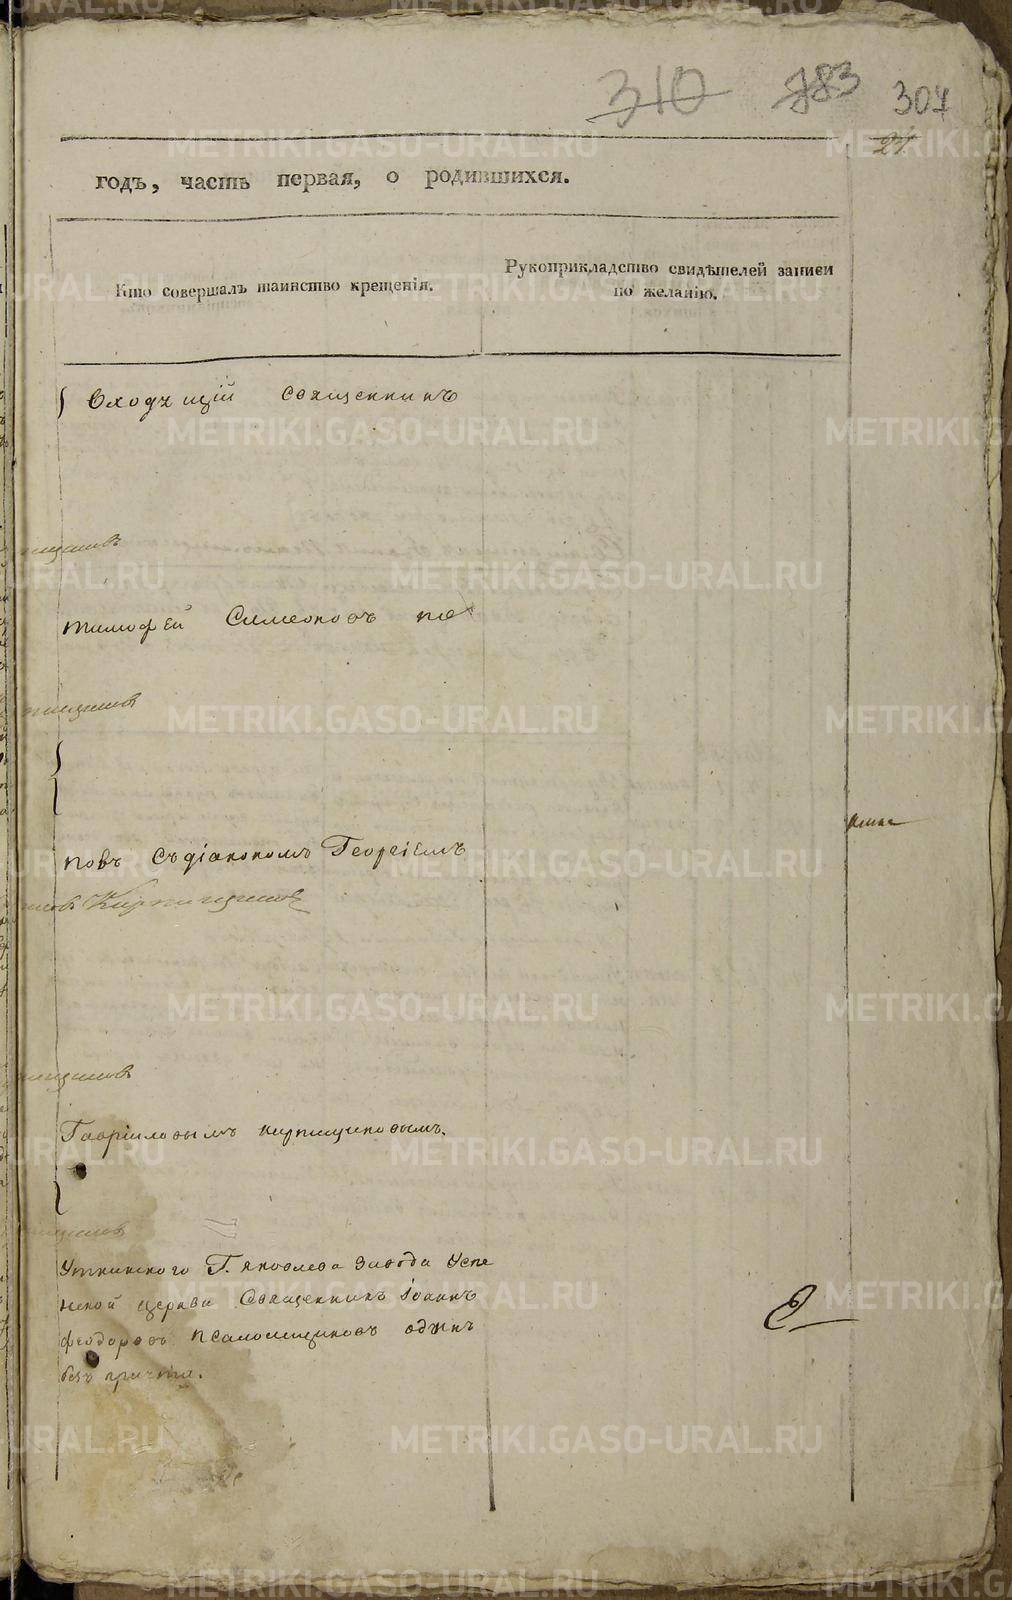 310 283 307
21
годъ, часть первая, о родившихся.
Кто совершалъ таинство крещенія.
Рукоприкладство свидѣтелей записи по желанію.
Входящій священникъ
Тимофей Симеоновъ по
повъ съ діакономъ Георгіемъ
Кирпищиковъ
Гавриловымъ кирпищиковымъ.
Уткинскаго Г. Яковлева завода Успе
нской церкви Священникъ Іоаннъ
Феодоровъ псаломщиковъ одинъ
безъ причта.
METRIKI.GASO-URAL.RU